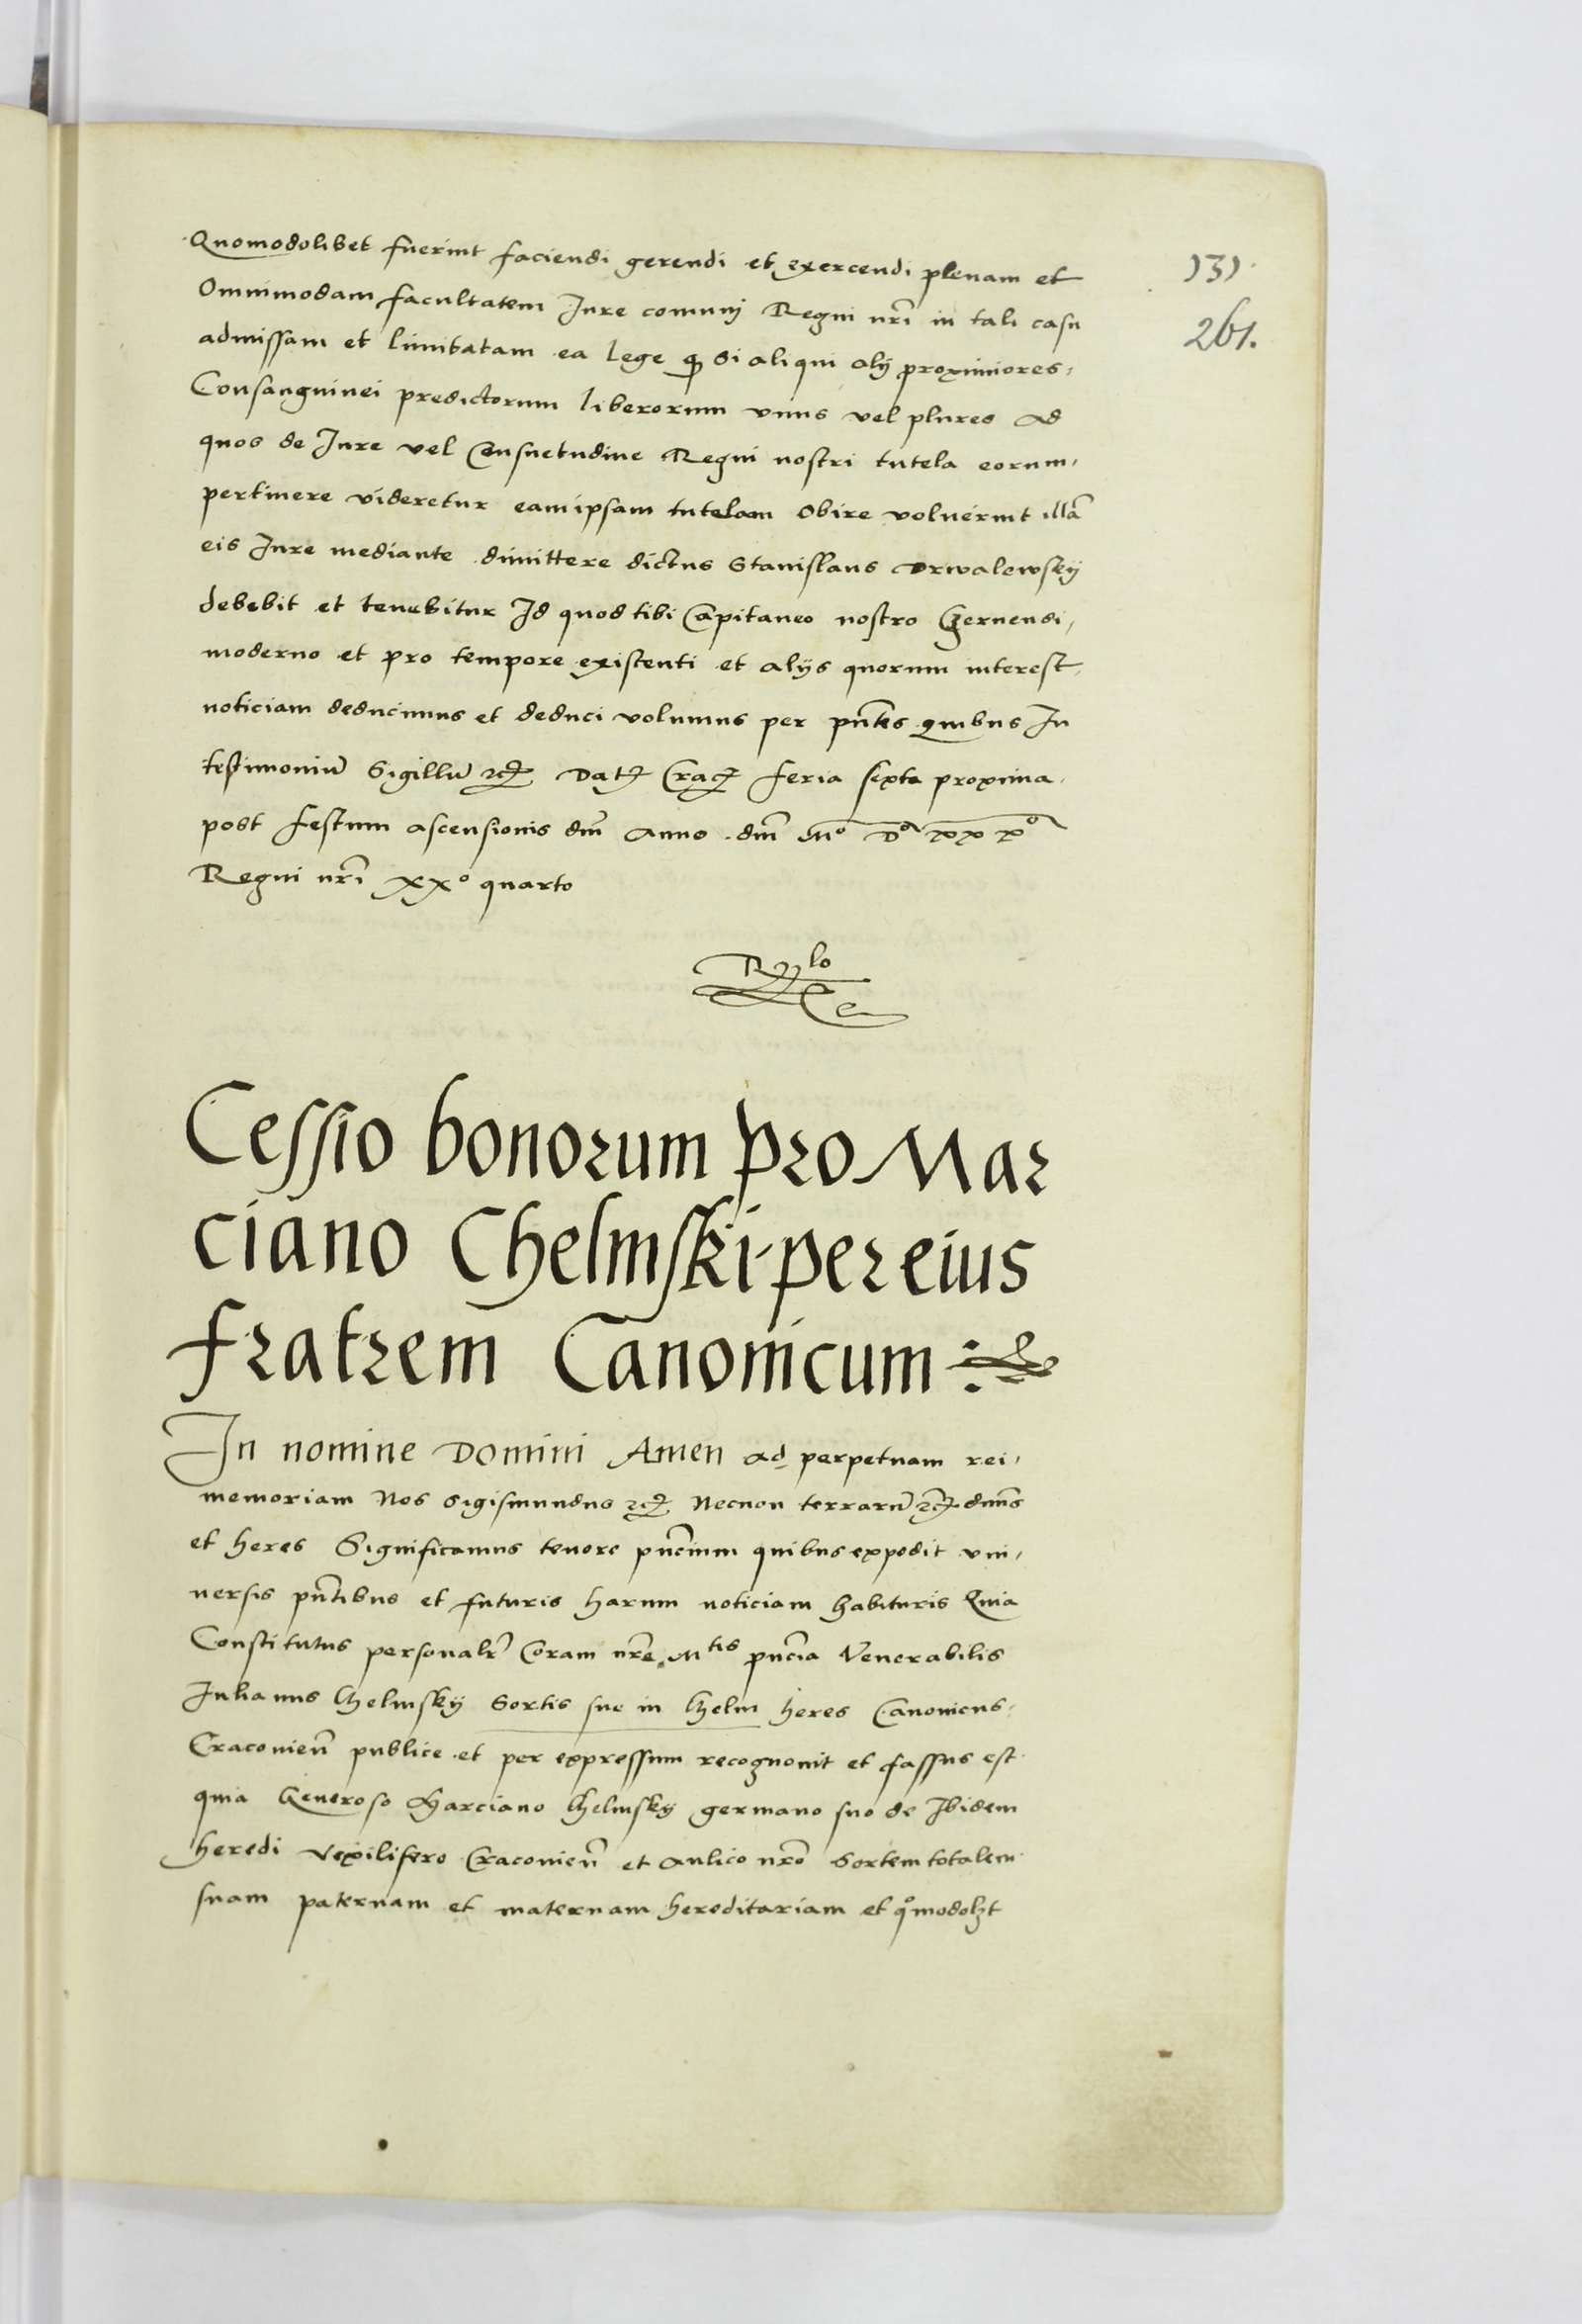 Quomodolibet fuerint faciendi gerendi et exercendi plenam et
131.
Omnimodam facultatem Jure comunj Regni nrĩ in tali casu
261.
admissam et limitatam ea lege si aliqui alij proximiores,
Consanguinei predictorum liberorum vnus vel plures ad
quos de Jure vel Consuetudine Regni nostri tutela eorum,
pertinere videretur eamipsam tutelam obire voluerint illã
eis Jure mediante dimittere dictus Stanislaus Drwalewskÿ
debebit et tenebitur Id quod tibi Capitaneo nostro Czernensi,
moderno et pro tempore existenti et alÿs quorum interest
noticiam deducimus et deduci volumus per pñtes quibus In
testimoniũ Sigillũ Dat Crac feria sexta proxima
post festum ascensionis dnĩ Anno dnĩ Mº Dº xxxº
Regni nrĩ xxº quarto
Cessio bonorum pro Mar
ciano Chelmski per eius
fratrem Canonicum
In nomine Domini Amen ad perpetuam rei,
memoriam Nos Sigismundus Necnon terrarũ dnũs
et heres Significamus tenore pñcium quibus expedit vni,
uersis pñtibus et futuris harum noticiam habituris Quia
Constitutus personalr̃ Coram nrẽ Mtis pñcia Venerabilis
Julianus Chelmskÿ Sortis sue in Chelm heres Canonicus
Craconieñ publice et per expressum recognouit et fassus est
quia Generoso Marciano Chelmskÿ germano suo de Ibidem
heredi Vexilifero Craconieñ et Aulico nrõ Sortem totalem
suam paternam et maternam hereditariam et qºmodolzt